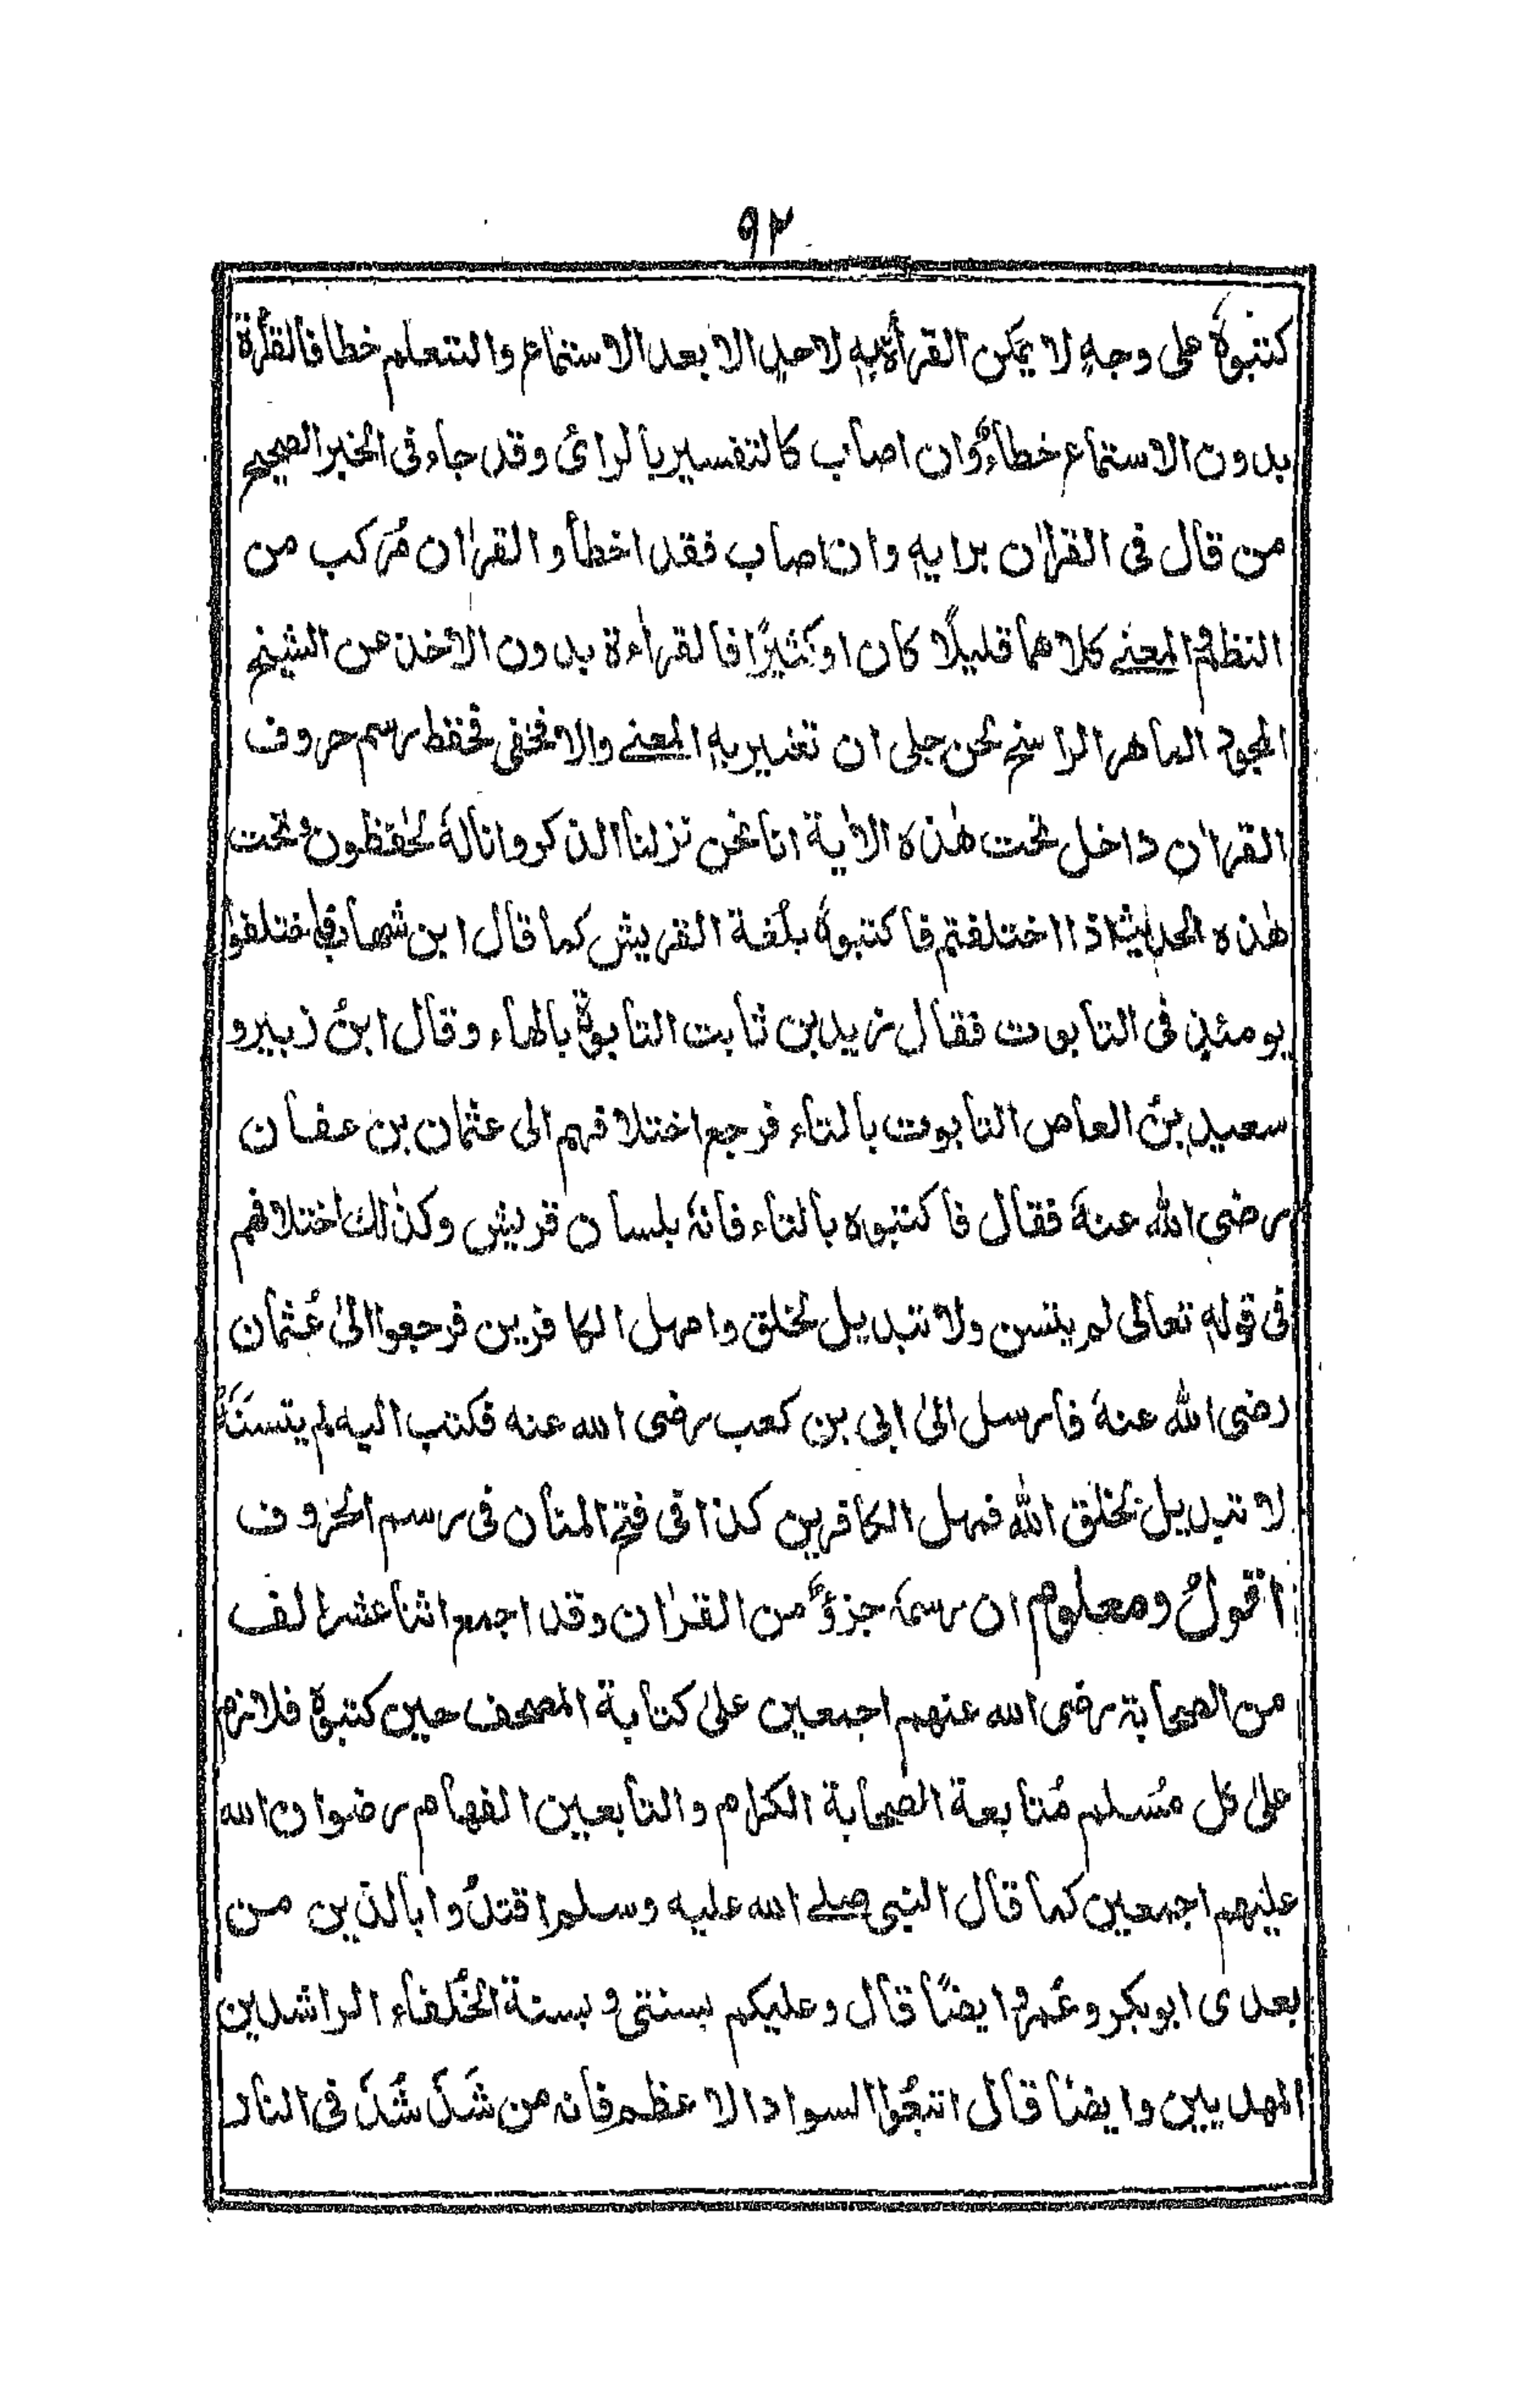 ٩٢
كتبوهُ على وجهٍ لا يمكن القرأة بهٖ لاحدٍ الا بعد الاستماع والتعلم خطا فالقرأة
بدون الاستماع خطاءٌ وان اصاب كالتفسير بالرائ وقد جاء فى الخبر الصحيح
من قال فى القرآن برايهٖ وان اصاب فقد اخطأ والقرآن مُركب من
النظم والمعنے كلاهما قليلًا كان او كثيرًا فالقراءة بدون الاخذ من الشيخ
المجود الماهر الراسخ لحن جلى ان تغير بهٖ المعنے والا فخفى فحفظ رسم حروف
القرآن داخل تحت هٰذه الاٰية انا نحن نزلنا الذكر وانا لهٗ لحٰفظون وتحت
هٰذه الحديث اذا اختلفتم فاكتبوهُ بلغة القريش كما قال ابن شهاب فاختلفوا
يومئذٍ فى التابوت فقال زيد بن ثابت التابوة بالهاء وقال ابنُ زبير و
سعيد بنُ العاص التابوت بالتاء فرجع اختلافهم الى عثمان بن عفان
رضى الله عنهٗ فقال فاكتبوه بالتاء فانهٗ بلسان قريش وكذٰلك اختلافهم
فى قولهٖ تعالى لم يتسن ولا تبديل لخلق وامهل الكافرين فرجعوا الىٰ عُثمان
رضى الله عنهٗ فارسل الىٰ ابى بن كعب رضى الله عنه فكتب اليه لم يتسنَّهْ
لا تبديل لخلق الله فمهل الكافرين كذا فى فتح المنان فى رسم الحروف
اقولُ ومعلوم ان رسمهٗ جزؤٌ من القرآن وقد اجمع اثنا عشر الف
من الصحابة رضى الله عنهم اجمعين علىٰ كتابة المصحف حين كتبوهُ فلازم
علىٰ كل مُسلم مُتابعة الصحابة الكرام والتابعين الفهام رضوان الله
عليهم اجمعين كما قال النبى صلے الله عليه وسلم اقتدُوا بالذين من
بعدى ابوبكر وعُمر وايضًا قال وعليكم بسنتى وبسنة الخُلفاء الراشدين
المهديين وايضًا قال اتبعُوا السواد الاعظم فانه من شَذَّ شُذَّ فى النار